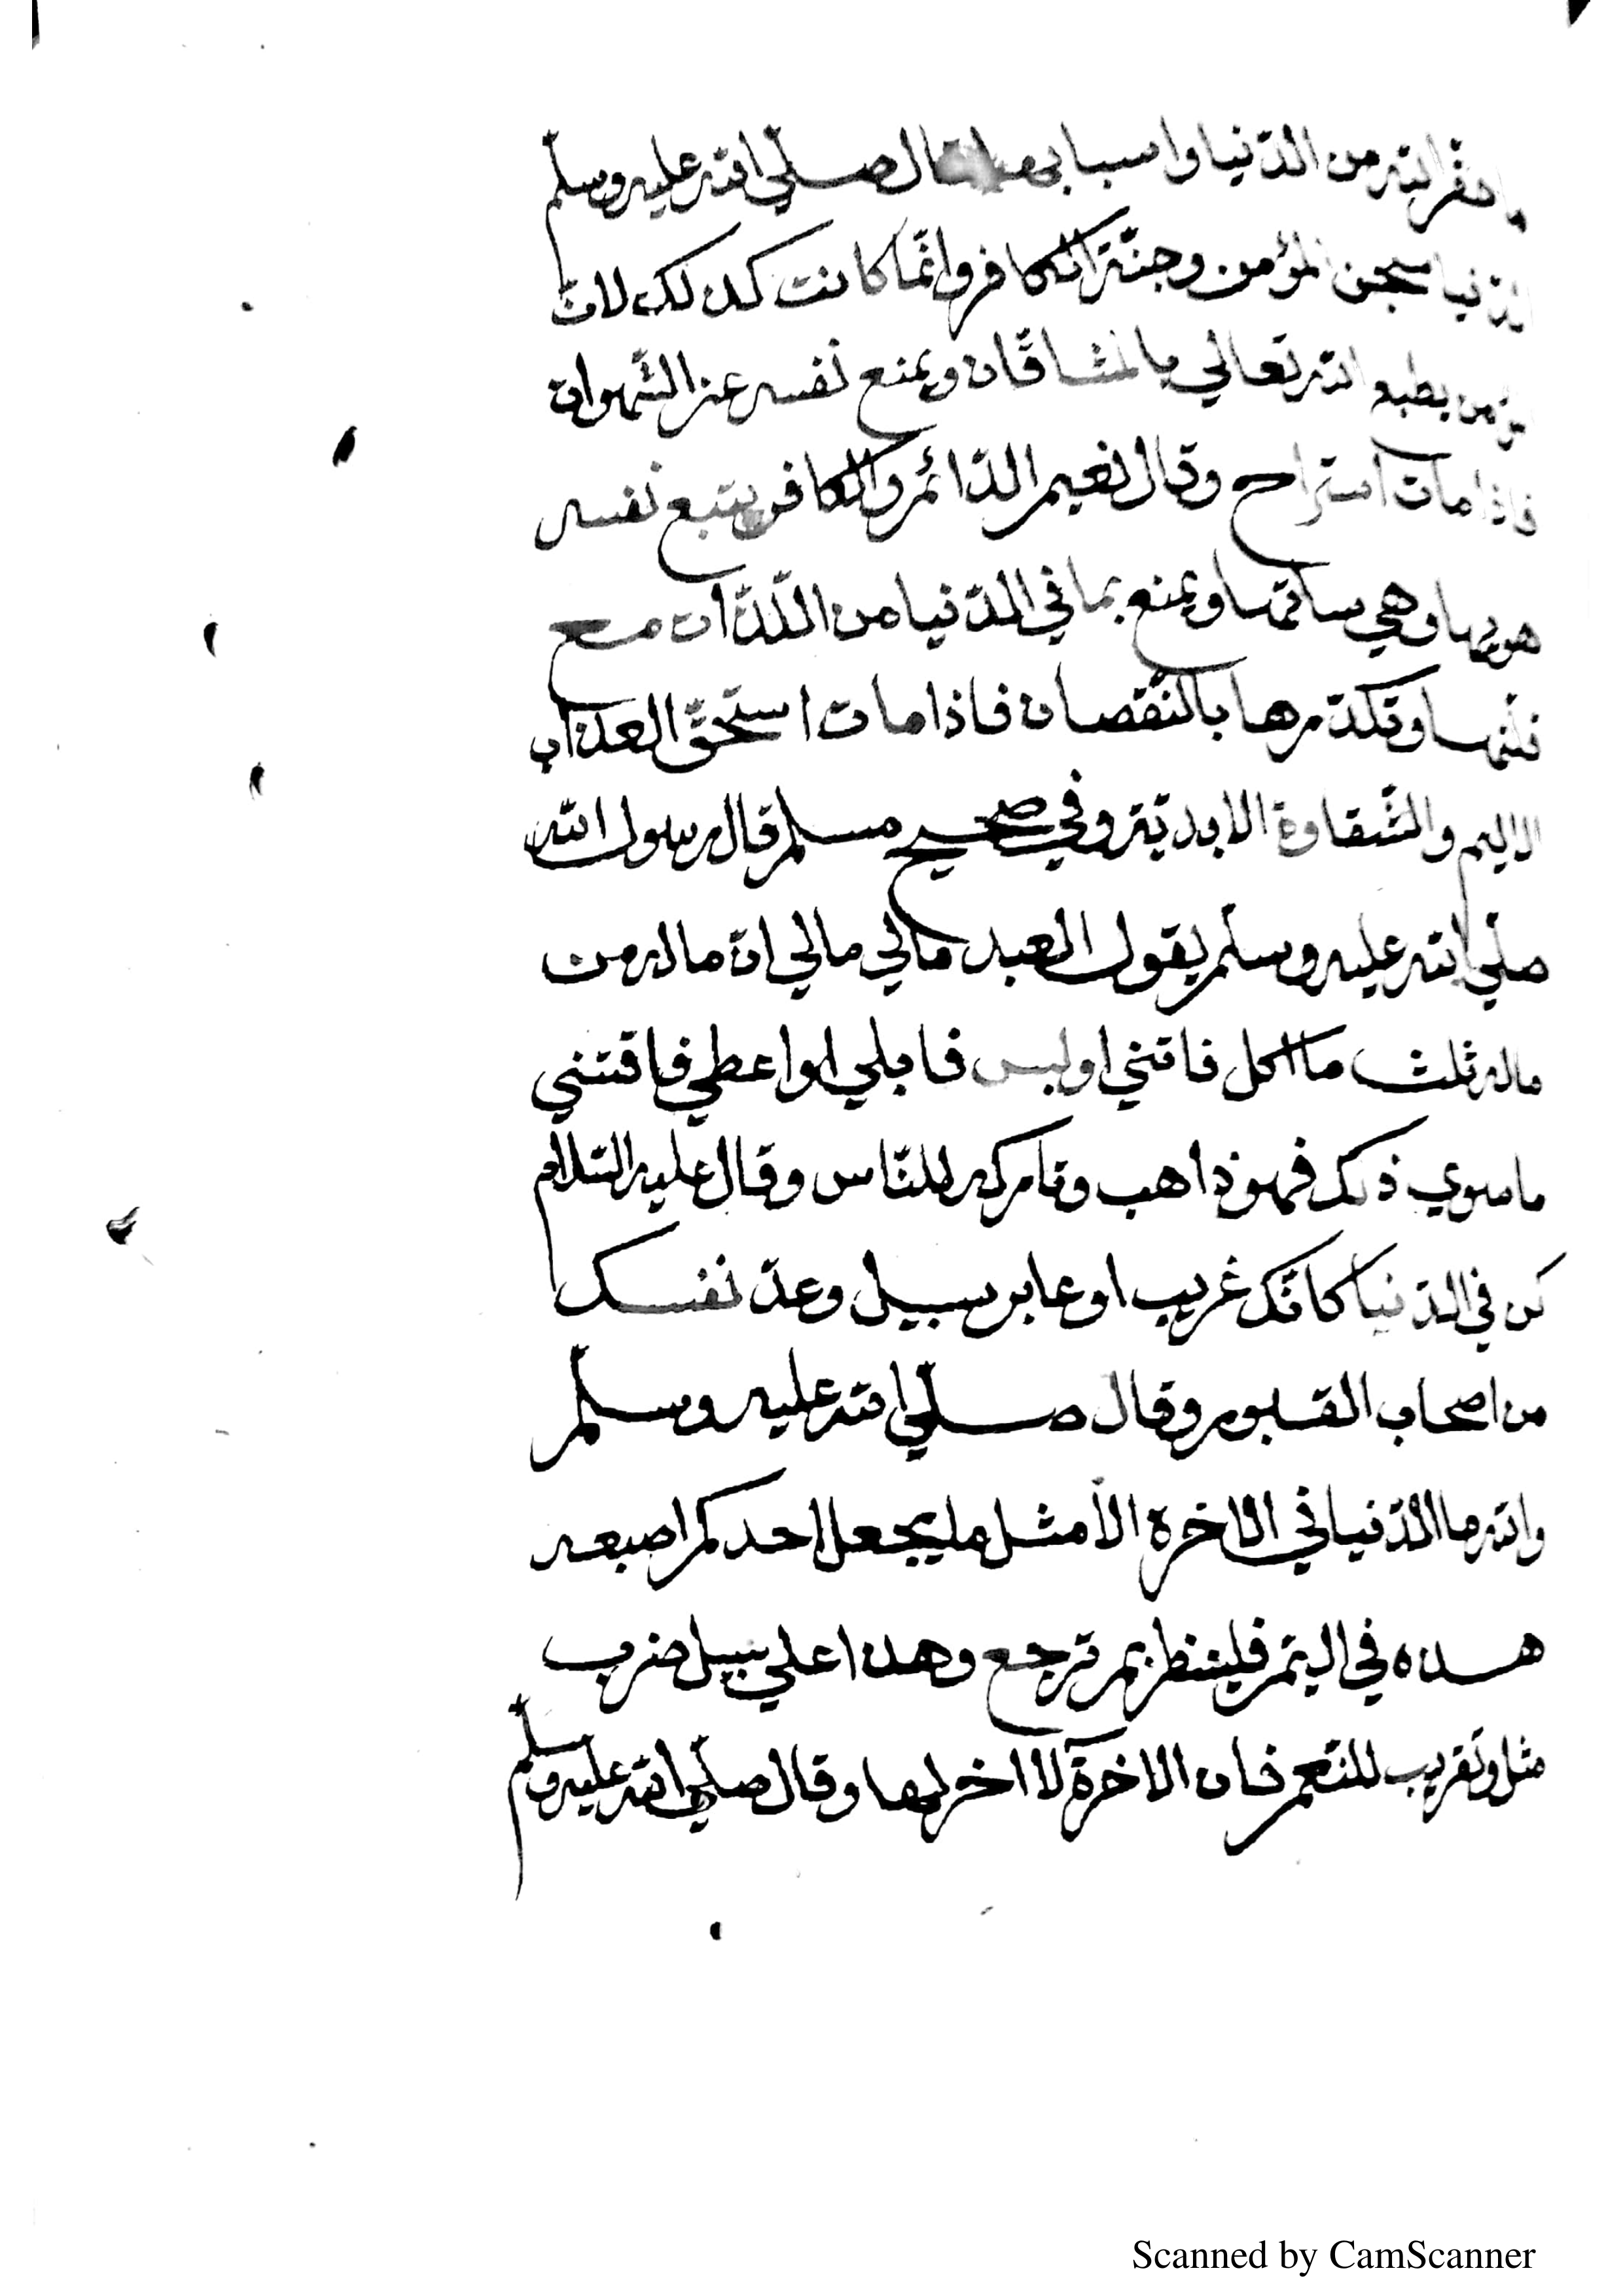 من الدّنيا واسبابها قال صلّي الله عليه وسلّم
الدّنيا سجن المؤمن وجنّة الكافر وانّما كانت كذلك لانّ
المؤمن يطيع الله تعالي بالمشاقّات ويمنع نفسه عن الشّهوات
فاذا مات استراح وقال لنعيم الدّائم والكافر يتبع نفسه
هويها وهي ساتّها ويمنع بما في الدّنيا من اللّذّات مع
وتكدّرها بالنّقصان فاذا مات استحقّ العذاب
الاليم والشّقاوة الابديّة وفي صحيح مسلم قال رسول الله
صلّي الله عليه وسلّم يقول العبد مالي مالي انّ ماله من
ماله ثلث ما اكل فافني او لبس فابلي او اعطي فاقتني
ما سوي ذلك فهو ذاهب وتاركه للنّاس وقال عليه السّلام
كن في الدّنيا كانّك غريب او عابر سبيل وعدّ نفسك
من اصحاب القبور وقال صلّي الله عليه وسلّم
والله ما الدّنيا في الاخرة الاّ مثل ما يجعل احدكم اصبعه
هذه في اليمّ فلينظر بم ترجع وهذا علي سبيل ضرب
مثل وتقريب للنّعم فان الاخرة لا اخر لها وقال صلّي الله عليه وسلّم
Scanned by CamScanner